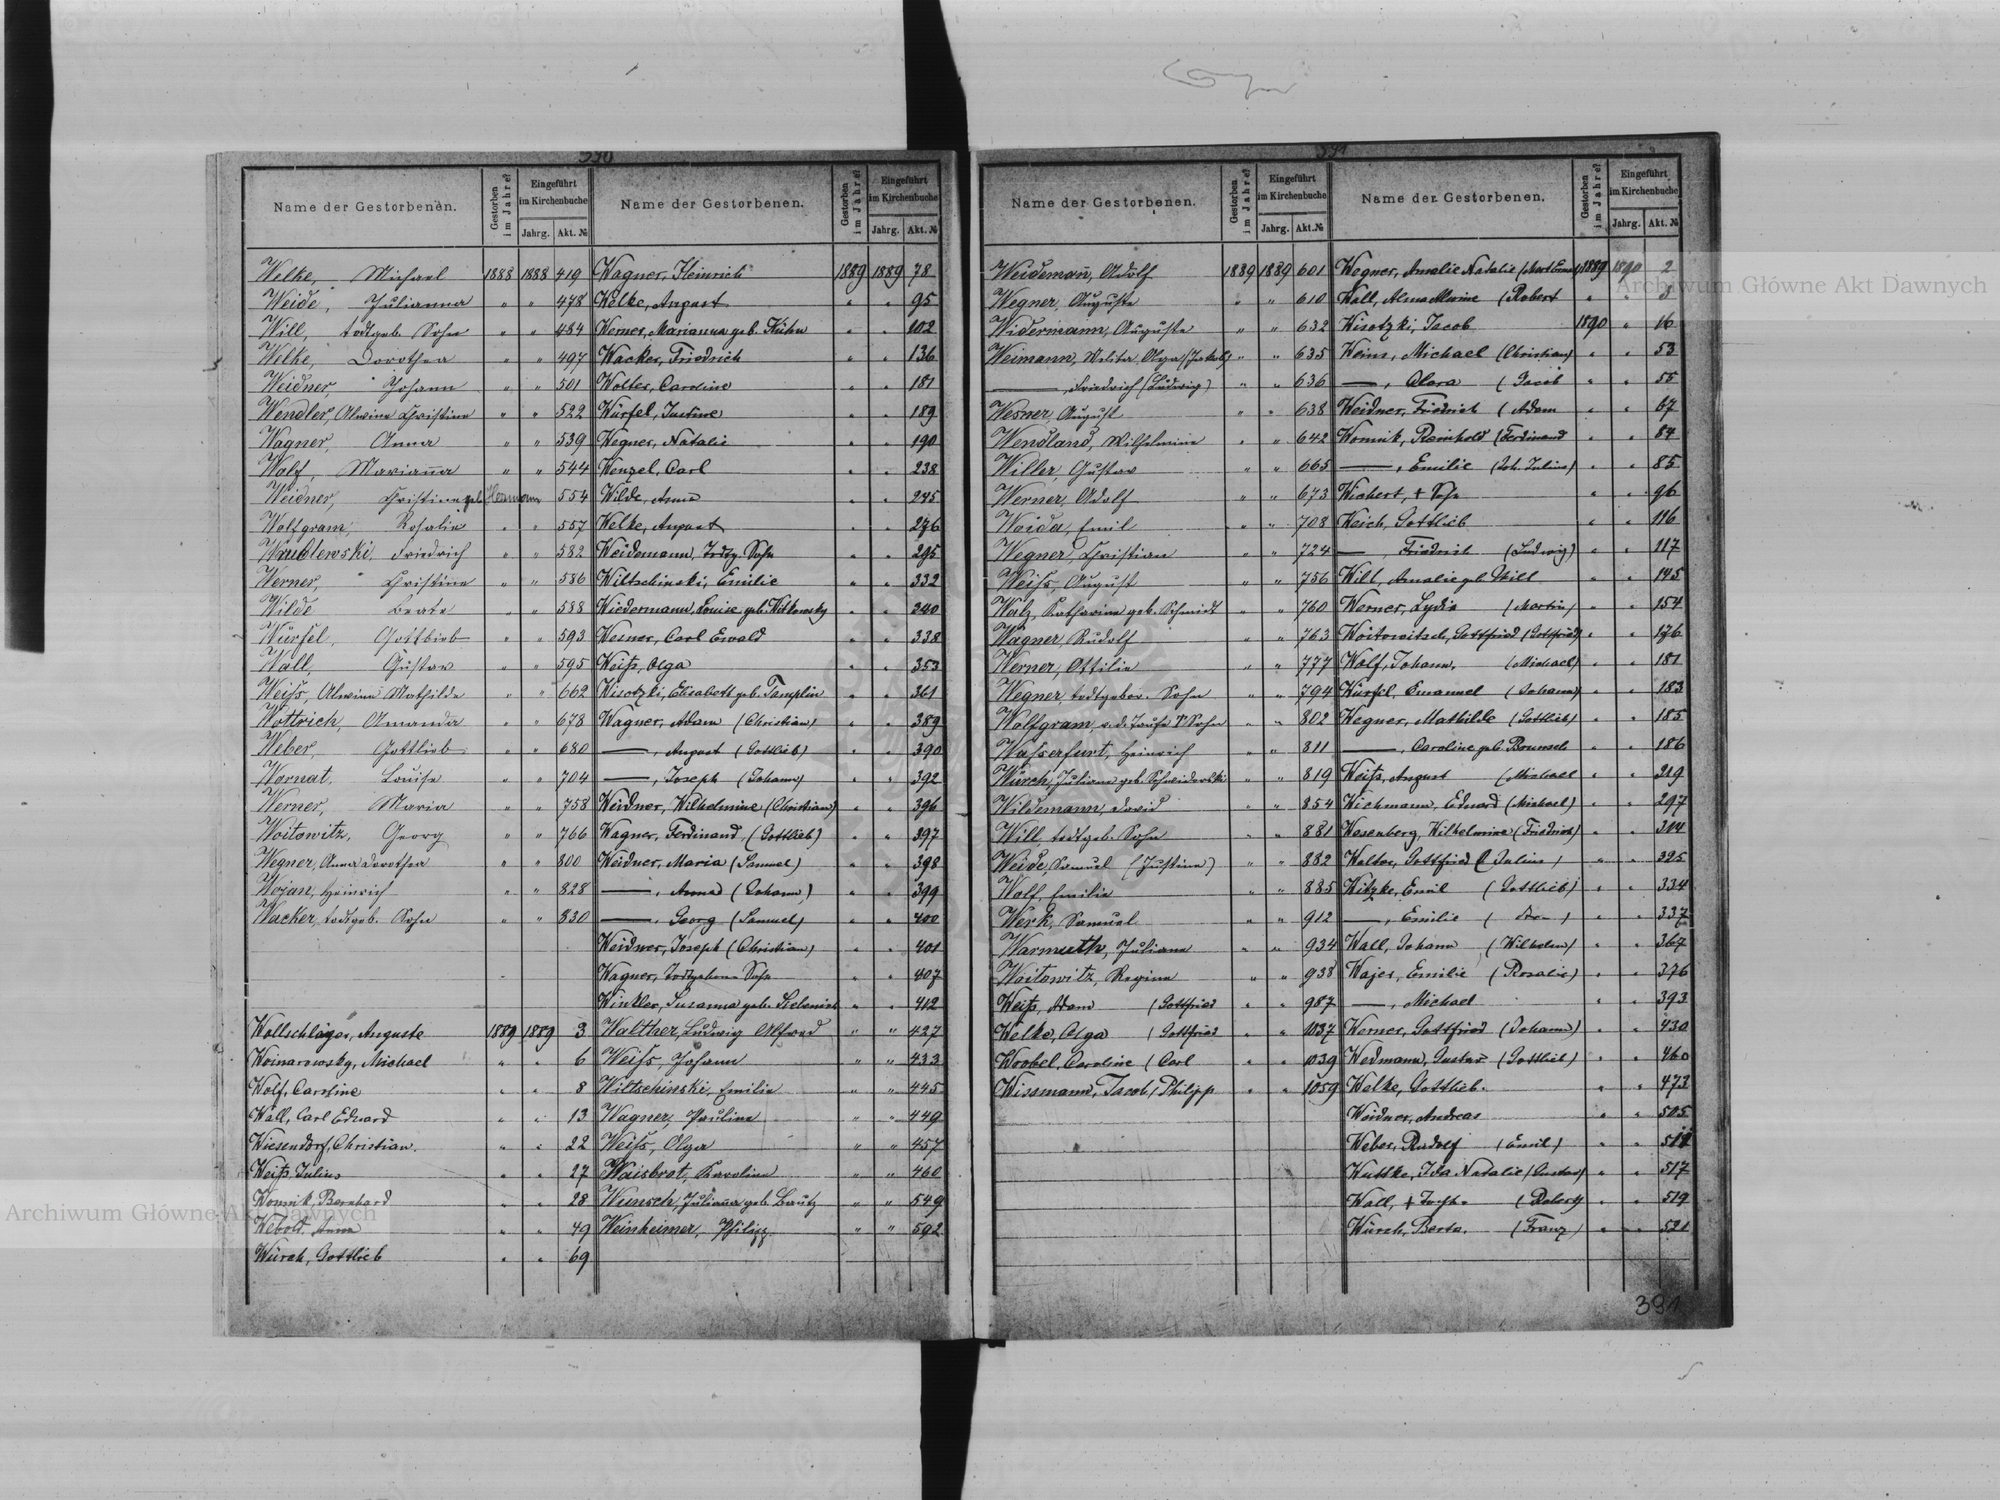 390
Name der Gestorbenen. Gestorben im Jahre? Eingeführt im Kirchenbuche Jahrg. Akt. №
Welke, Michael 1888 1888 419
Weide, Julianna " " 478
Will, todtgeb. Sohn " " 484
Welke, Dorothea " " 497
Weidner, Johann " " 501
Wendler, Alwine Christine " " 522
Wagner, Anna " " 539
Wolf, Marianna " " 544
Weidner, Christine geb. Hermann 554
Wolfgram, Rosalie " " 557
Friedrich " " 582
Werner, Christine " " 586
Wilde Beate " " 588
Würfel, Gottlieb " " 593
Wall, Gustav " " 595
Weiss, Alwine Mathilde " " 662
Wottrich, Amanda " " 678
Weber, Gottlieb " " 680
Wornat, Louise " " 704
Werner, Maria " " 758
Woitowitz, Georg " " 766
Wegner, Anna Dorothea " " 800
Wojan, Heinrich " " 828
Wacker, todtgeb. Sohn " " 830
Wollschläger, Auguste 1889 1889 3
Woinarowsky, Michael " " 6
Wolf, Caroline " " 8
Wall, Carl Eduard " " 13
Wiesendorf, Christian. " " 22
Weiss, Julius " " 27
Wonnik, Bernhard " " 28
Anna " " 49
Würch, Gottlieb " " 69
Name der Gestorbenen. Gestorben im Jahre? Eingeführt im Kirchenbuche Jahrg. Akt. №
Wagner, Heinrich 1889 1889 78
Welke, August " " 95
Werner, Marianna geb. Kühn " " 102
Wacker, Friedrich " " 136
Wolter, Caroline " " 181
Würfel, Justine " " 189
Wegner, Natalie " " 190
Wenzel, Carl " " 238
Wilde, Anna " " 245
Welke, August " " 276
Weidemann, Todtg. Sohn " " 295
Wiltschinski, Emilie " " 332
Wiedermann, Louise geb. Witkowsky " " 340
Wesner, Carl Ewald " " 338
Weiss, Olga " " 353
Wisotzki, Elisabeth geb. Templin " " 361
Wagner, Adam (Christian) " " 389
——, August (Gottlieb) " " 390
——, Joseph (Johann) " " 392
Weidner, Wilhelmine (Christian) " " 396
Wagner, Ferdinand (Gottlieb) " " 397
Weidner, Maria (Samuel) " " 398
——, Anna (Johann) " " 399
——, Georg (Samuel) " " 400
Weidner, Joseph (Christian) " " 401
Wagner, Todtgeboren Sohn " " 407
Winkler, Susanna geb. " " 412
Walther, Ludwig Alfred " " 427
Weiss, Johann " " 433
Wiltschinski, Emilie " " 445
Wagner, Pauline " " 449
Weiss, Olga " " 457
Waisbrot, Karoline " " 460
Wünsch, Julianna geb. Bautz " " 549
Weinheimer, Philipp. " " 592
391
Name der Gestorbenen. Gestorben im Jahre? Eingeführt im Kirchenbuche Jahrg. Akt. №
Weidemann, Adolf 1889 1889 601
Wegner, Auguste " " 610
Widermann, Auguste " " 632
Weimann, Melita Olga (Jakob) " " 635
——, Friedrich (Ludwig) " " 636
Wesner, August " " 638
Wendland, Wilhelmine " " 642
Willer, Gustav " " 665
Werner, Adolf " " 673
Woida, Emil " " 708
Wegner, Christian " " 724
Weiss, August " " 756
Walz, Katharina geb. Schmidt " " 760
Wagner, Rudolf " " 763
Werner, Ottilie " " 777
Wegner, todtgebor. Sohn " " 794
Wolfgram, v. d. Taufe V. Sohn " " 802
Wasserfurt, Heinrich " " 811
Würch, Juliana geb. " " 819
Wildemann, David " " 854
Will, todtgeb. Sohn " " 881
Weide, Samuel (Justine) " " 882
Wolf, Emilie " " 885
Werk, Samuel " " 912
Warmuth, Juliana " " 934
Woitowitz, Regina " " 938
Weiss, Adam (Gottfried " " 987
Welke, Olga (Gottfried " " 1037
Caroline (Carl " " 1039
Wissmann, Jacob, Philipp " " 1059
Name der Gestorbenen. Gestorben im Jahre? Eingeführt im Kirchenbuche Jahrg. Akt. №
Wegner, Amalie Natalie 1889 1890 2
Wall, Alma Marie (Robert " " 3
Wisotzki, Jacob 1890 " 16
Weiss, Michael (Christian) " " 53
——, Clara (Jacob " " 55
Weidner, Friedrich (Adam " " 67
Wonnik, Reinhold (Ferdinand " " 84
——, Emilie (Joh. Julius) " " 85
Wichert, + Sohn " " 96
Weich, Gottlieb " " 116
——, Friedrich (Ludwig) " " 117
Will, Amalie geb. Will " " 145
Werner, Lydia (Martin) " " 154
Woitowitsch, Gottfried (Gottfried) " " 176
Wolf, Johann, (Michael) " " 181
Würfel, Emanuel (Johann) " " 183
Wegner, Mathilde (Gottlieb) " " 185
——, Caroline geb. " " 186
Weiss, August (Michael " " 219
Wichmann, Eduard (Michael) " " 297
Wesenberg, Wilhelmine (Friedrich) " " 314
Walter, Gottfried (Julius) " " 325
Witzke, Emil (Gottlieb) " " 334
——, Emilie ( dto ) " " 337
Wall, Johann (Wilhelm) " " 367
Wajer, Emilie (Rosalie) " " 376
——, Michael " " 393
Werner, Gottfried (Johann) " " 430
Wedmann, Gustav (Gottlieb) " " 460
Welke, Gottlieb. " " 473
Weidner, Andreas " " 505
Weber, Rudolf (Emil) " "
Wuttke, Ida Natalie (Gustav) " " 517
Wall, + (Robert) " " 519
Würch, Berta. (Franz) " " 521
391
Archiwum Główne Akt Dawnych
Archiwum Główne Akt Dawnych